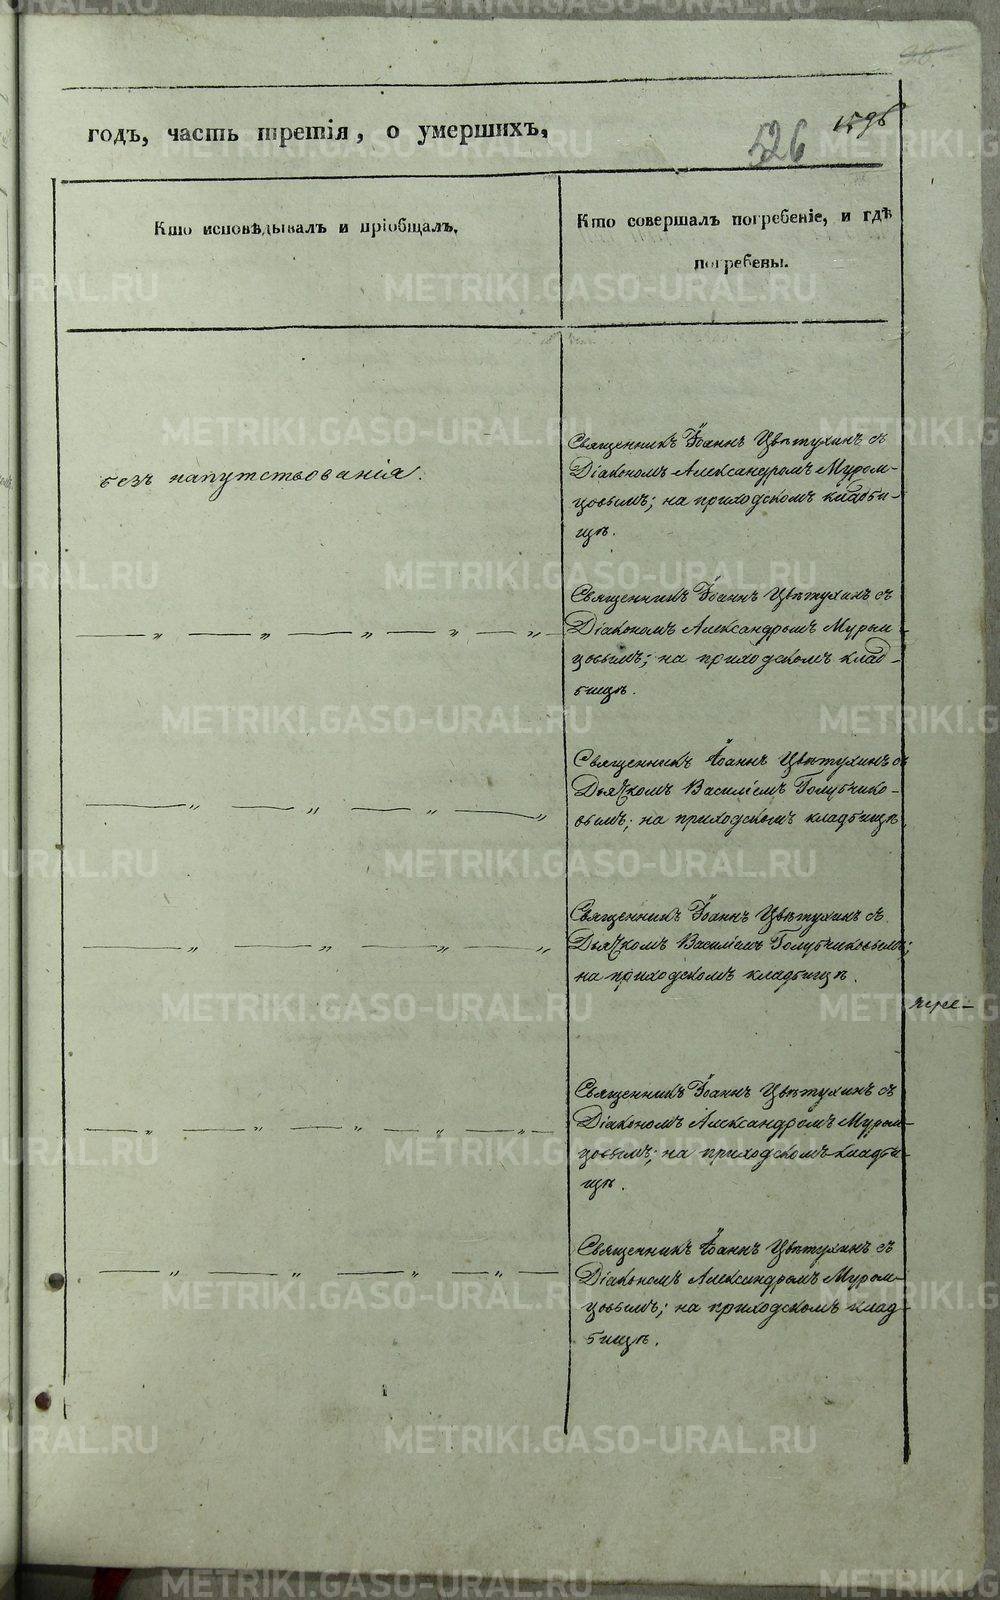 годъ, часть третія, о умершихъ,
526
Кто исповѣдывалъ и пріобщалъ.
Кто совершалъ погребеніе, и гдѣ
погребены.
безъ напутствованія.
Священникъ Іоаннъ Цвѣтухинъ съ
Діакономъ Александромъ Муром-
цовымъ; на приходскомъ кладби-
щѣ.
— „ — „ — „ — „ — „
Священникъ Іоаннъ Цвѣтухинъ съ
Діакономъ Александромъ Муром-
цовымъ; на приходскомъ клад-
бищѣ.
— „ — „ — „ — „
Священникъ Іоаннъ Цвѣтухинъ съ
Дьячкомъ Василіемъ Голубчико-
вымъ; на приходскомъ кладбищѣ.
— „ — „ — „ — „
Священникъ Іоаннъ Цвѣтухинъ съ
Дьячкомъ Василіемъ Голубчиковымъ;
на приходскомъ кладбищѣ.
— „ — „ — „ — „ — „ —
Священникъ Іоаннъ Цвѣтухинъ съ
Діакономъ Александромъ Муром-
цовымъ; на приходскомъ кладби-
щѣ.
— „ — „ — „ — „ —
Священникъ Іоаннъ Цвѣтухинъ съ
Діакономъ Александромъ Муром-
цовымъ; на приходскомъ клад-
бищѣ.
METRIKI.GASO-URAL.RU